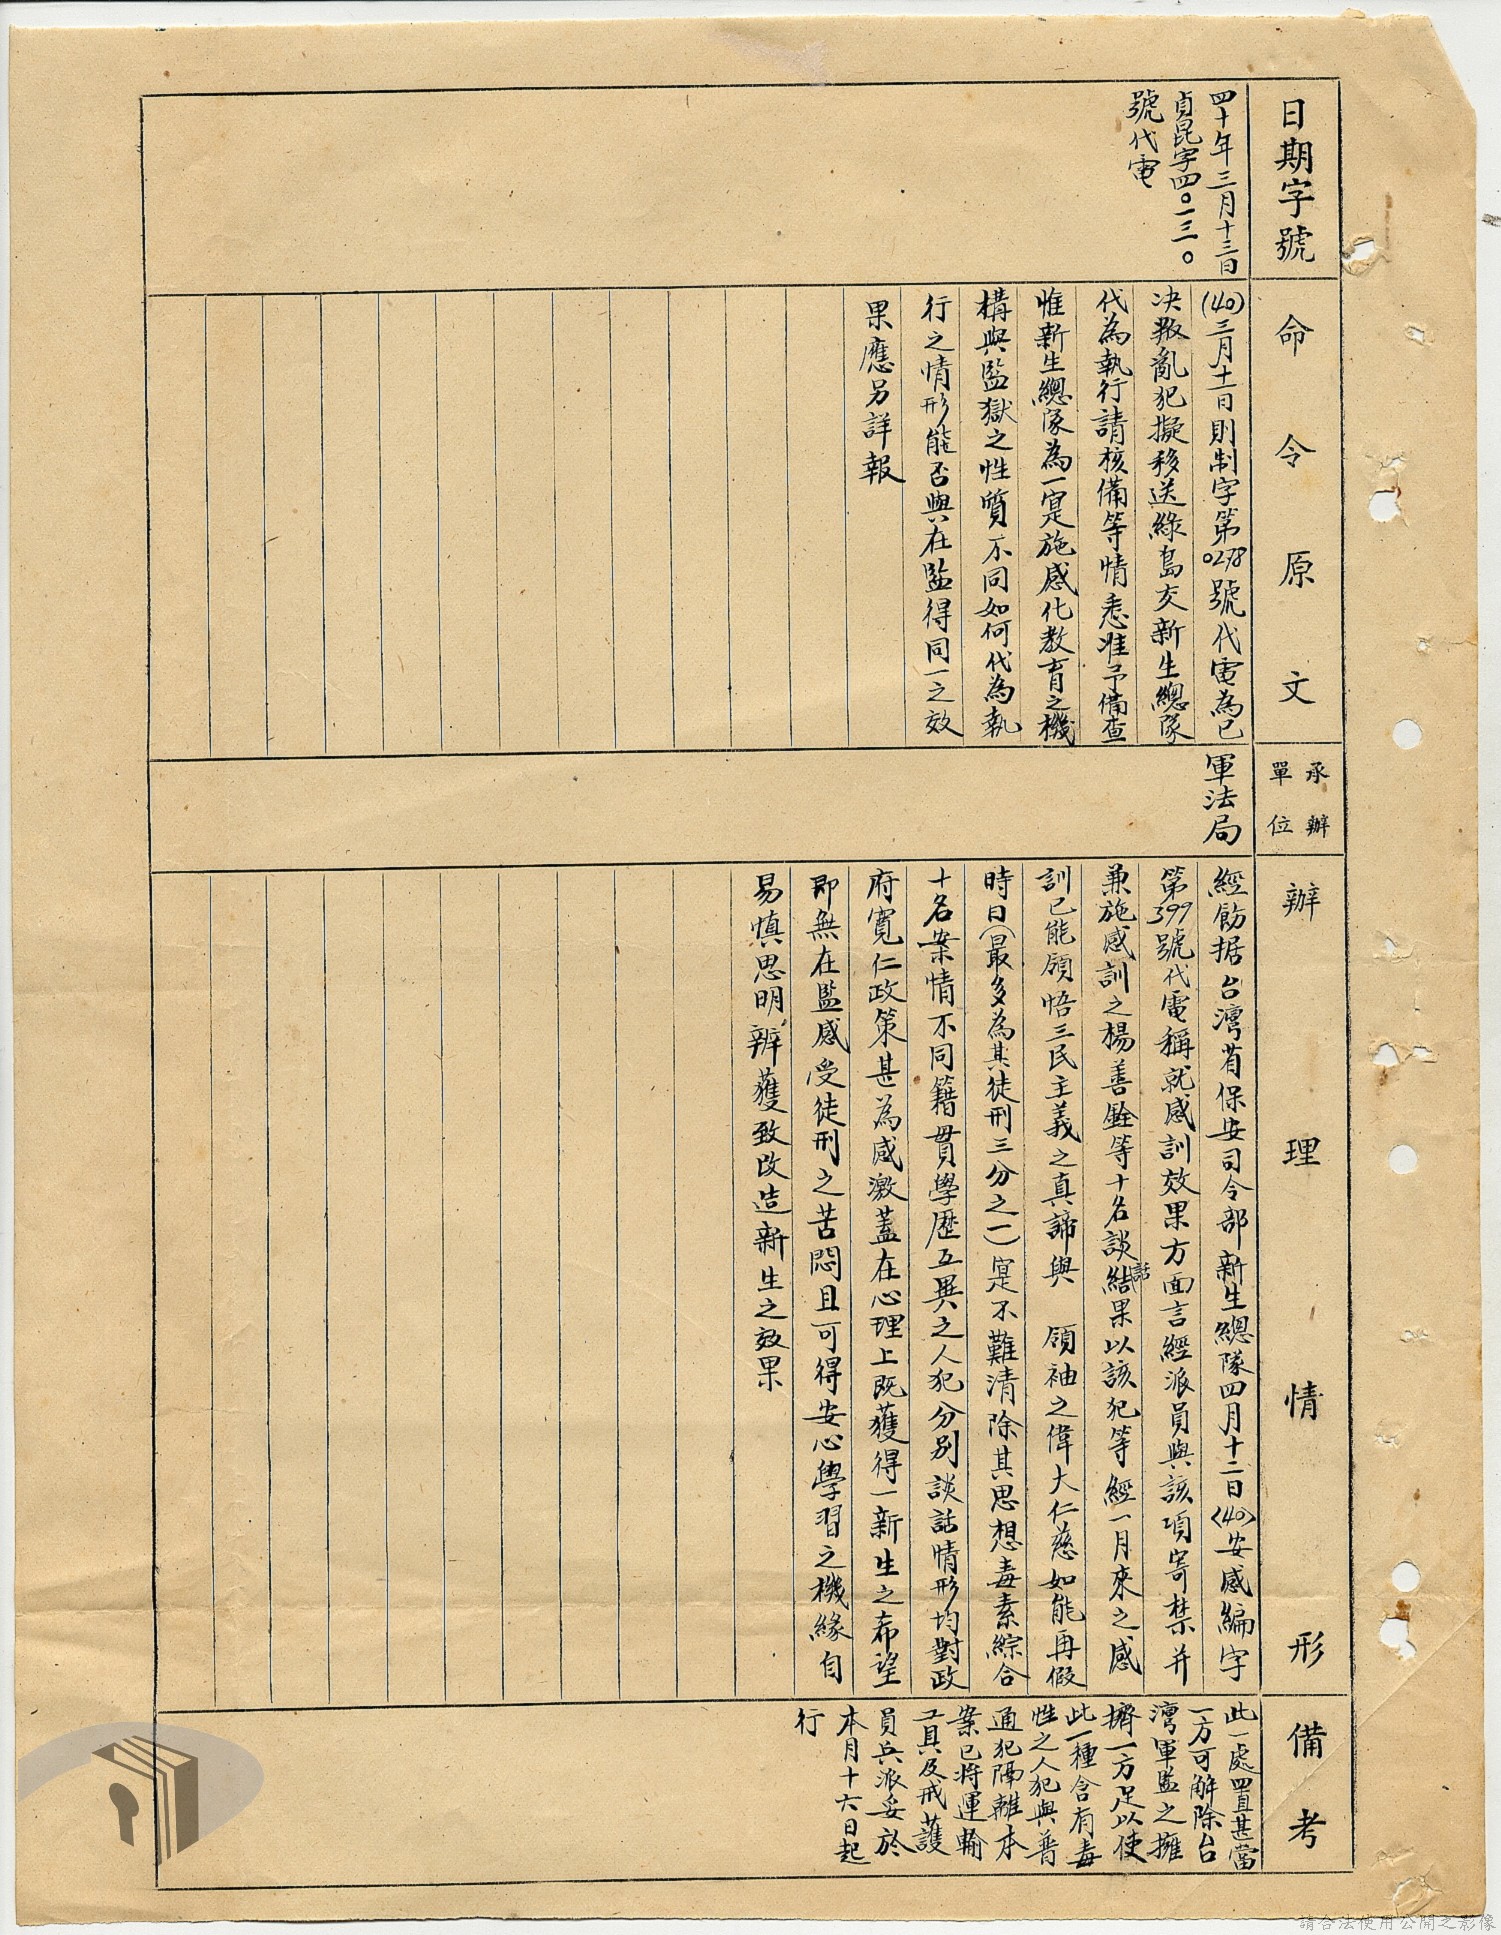 日期字號
四十年三月十三日
貞昆字四○一三○
號代電
命令原文
(40)三月十一日則制字第0278號代電為已
決叛亂犯擬移送綠島交新生總隊
代為執行請核備等情悉准予備查
惟新生總隊為一寔施感化教育之機
構與監獄之性質不同如何代為執
行之情形能否與在監得同一之效
果應另詳報
承辦
單位
軍法局
辦理情形
經飭据台灣省保安司令部新生總隊四月十二日(40)安感編字
第399號代電稱就感訓效果方面言經派員與該項寄禁并
兼施感訓之楊善銓等十名談話結果以該犯等經一月來之感
訓已能領悟三民主義之真諦與 領袖之偉大仁慈如能再假
時日(最多為其徒刑三分之一)寔不難清除其思想毒素綜合
十名案情不同籍貫學歷互異之人犯分別談話情形均對政
府寬仁政策甚為感激蓋在心理上既獲得一新生之希望
即無在監感受徒刑之苦悶且可得安心學習之機緣自
易慎思明辨獲致改造新生之效果
備考
此一處置甚當
一方可解除台
灣軍監之擁
擠一方足以使
此一種含有毒
性之人犯與普
通犯隔離本
案已將運輸
工具及戒護
員兵派妥於
本月十六日起
行
請合法使用公開之影像